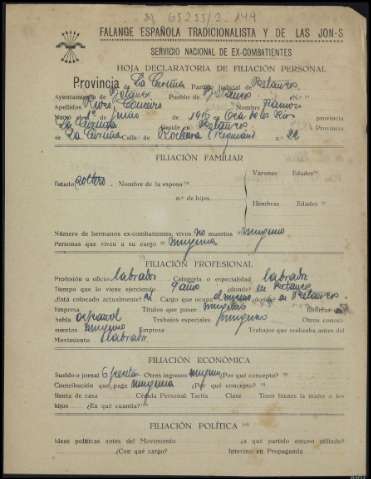 65255/2 144
FALANGE ESPAÑOLA TRADICIONALISTA Y DE LAS JON-S
SERVICIO NACIONAL DE EX-COMBATIENTES
HOJA DECLARATORIA DE FILIACIÓN PERSONAL
Provincia de La Coruña Partido Judicial de Betanzos
Ayuntamiento de Betanzos Pueblo de Betanzos
Apellidos Nombre Ramón
1º Junio de 1916 en provincia
La Coruña Reside en Betanzos Provincia
de La Coruña Calle de nº 22
FILIACIÓN FAMILIAR
Varones Edades
Estado soltero Nombre de la esposa
n.º de hijos
Hembras Edades
Número de hermanos ex-combatientes, vivos no muertos ninguno
Personas que viven a su cargo ninguna
FILIACIÓN PROFESIONAL
Profesión u oficio labrador Categoría o especialidad labrador
Tiempo que lo viene ejerciendo 9 años ¿dónde? en Betanzos
¿Está colocado actualmente? Cargo que ocupa ninguno ¿dónde? en Betanzos
Empresa Títulos que posee ninguno
Habla español Trabajos especiales ninguno Otros conoci-
mientos ninguno Empresa Trabajos que realizaba antes del
Movimiento labrador
FILIACIÓN ECONÓMICA
Sueldo o jornal 6 pesetas Otros ingresos ninguno ¿Por qué concepto?
Contribución que paga ninguna ¿Por qué concepto?
Renta de casa Cédula Personal Tarifa Clase Tiene bienes la madre o los
hijos ¿En qué cuantía?
FILIACIÓN POLÍTICA
Ideas políticas antes del Movimiento ¿a qué partido estuvo afiliado?
¿Con qué cargo? Intervino en Propaganda